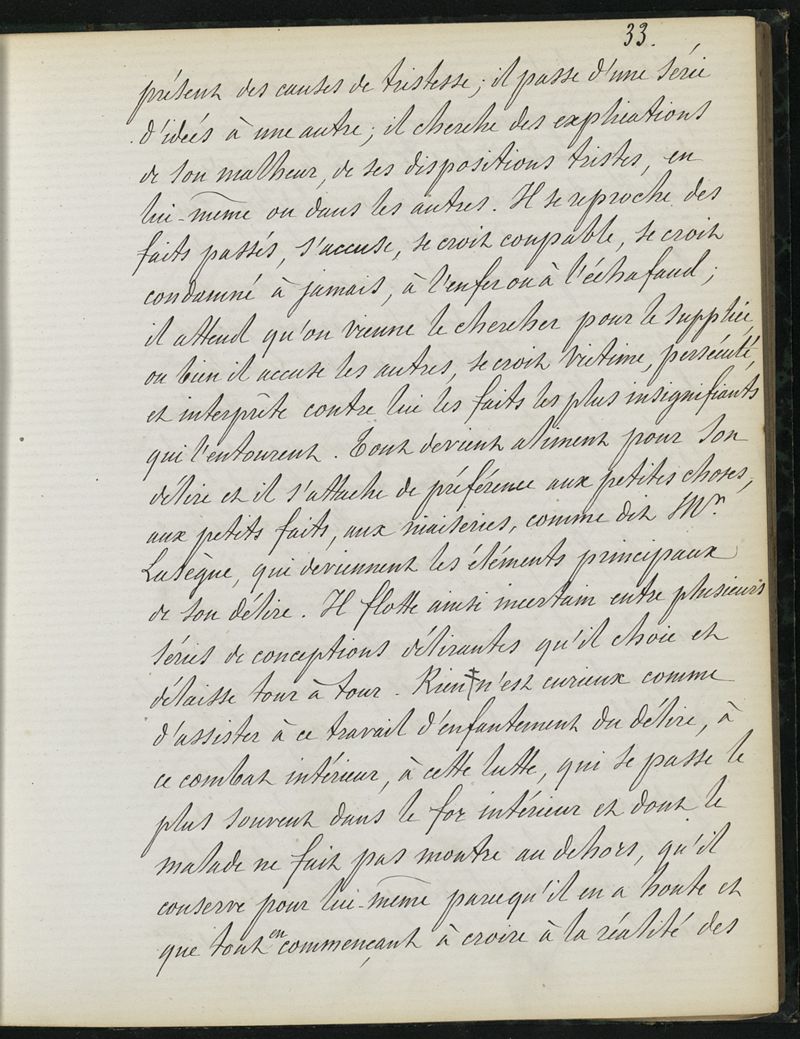 33.
présent des causes de tristesse; il passe d'une série
d'idées à une autre; il cherche des explications
de son malheur, de ses dispositions tristes, en
lui-même ou dans les autres. Il se reproche des
faits passés, s'accuse, se croit coupable, se croit
condamné à jamais, à l'enfer ou à l'échafaud;
il attend qu'on vienne le chercher pour le supplice,
ou bien il accuse les autres, se croit victime, persécuté,
et interprète contre lui les faits les plus insignifiants
qui l'entourent. Tout devient aliment pour son
délire et il s'attache de préférence aux petites choses,
aux petits faits, aux niaiseries, comme dit Mr.
Lasègue, qui deviennent les éléments principaux
de son délire. Il flotte ainsi incertain entre plusieurs
séries de conceptions délirantes qu'il choie et
délaisse tour à tour. Rien n'est curieux comme
d'assister à ce travail d'enfantement du délire, à
ce combat intérieur, à cette lutte, qui se passe le
plus souvent dans le for intérieur et dont le
malade ne fait pas montre au dehors, qu'il
conserve pour lui-même parcequ'il en a honte et
que tout en commençant à croire à la réalité des